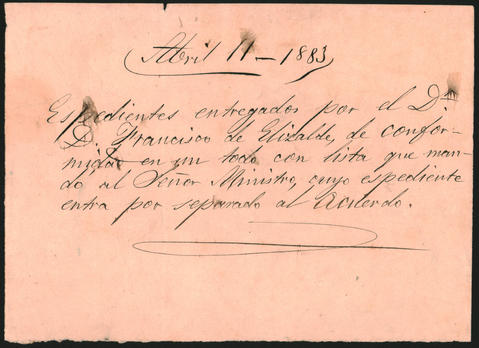 Abril 11 - 1883
Espedientes entregados por el Dn
D. Francisco de Elizalde, de confor-
midad en un todo con lista que man-
do al Señor Ministro, cuyo espediente
entra por separado al Acuerdo.